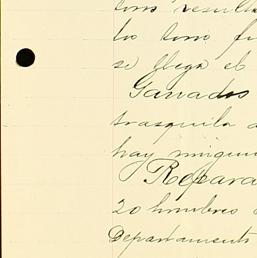 tons result
lo tono fu
se llega el
Ganados
trasquila a
hay ningun
Repara
20 hombres
Departamento